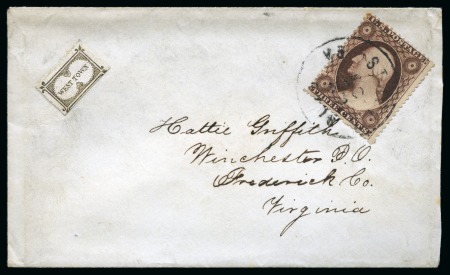 WEST TOWN
Hattie Griffith
Winchester P.O.
Frederick Co.
Virginia